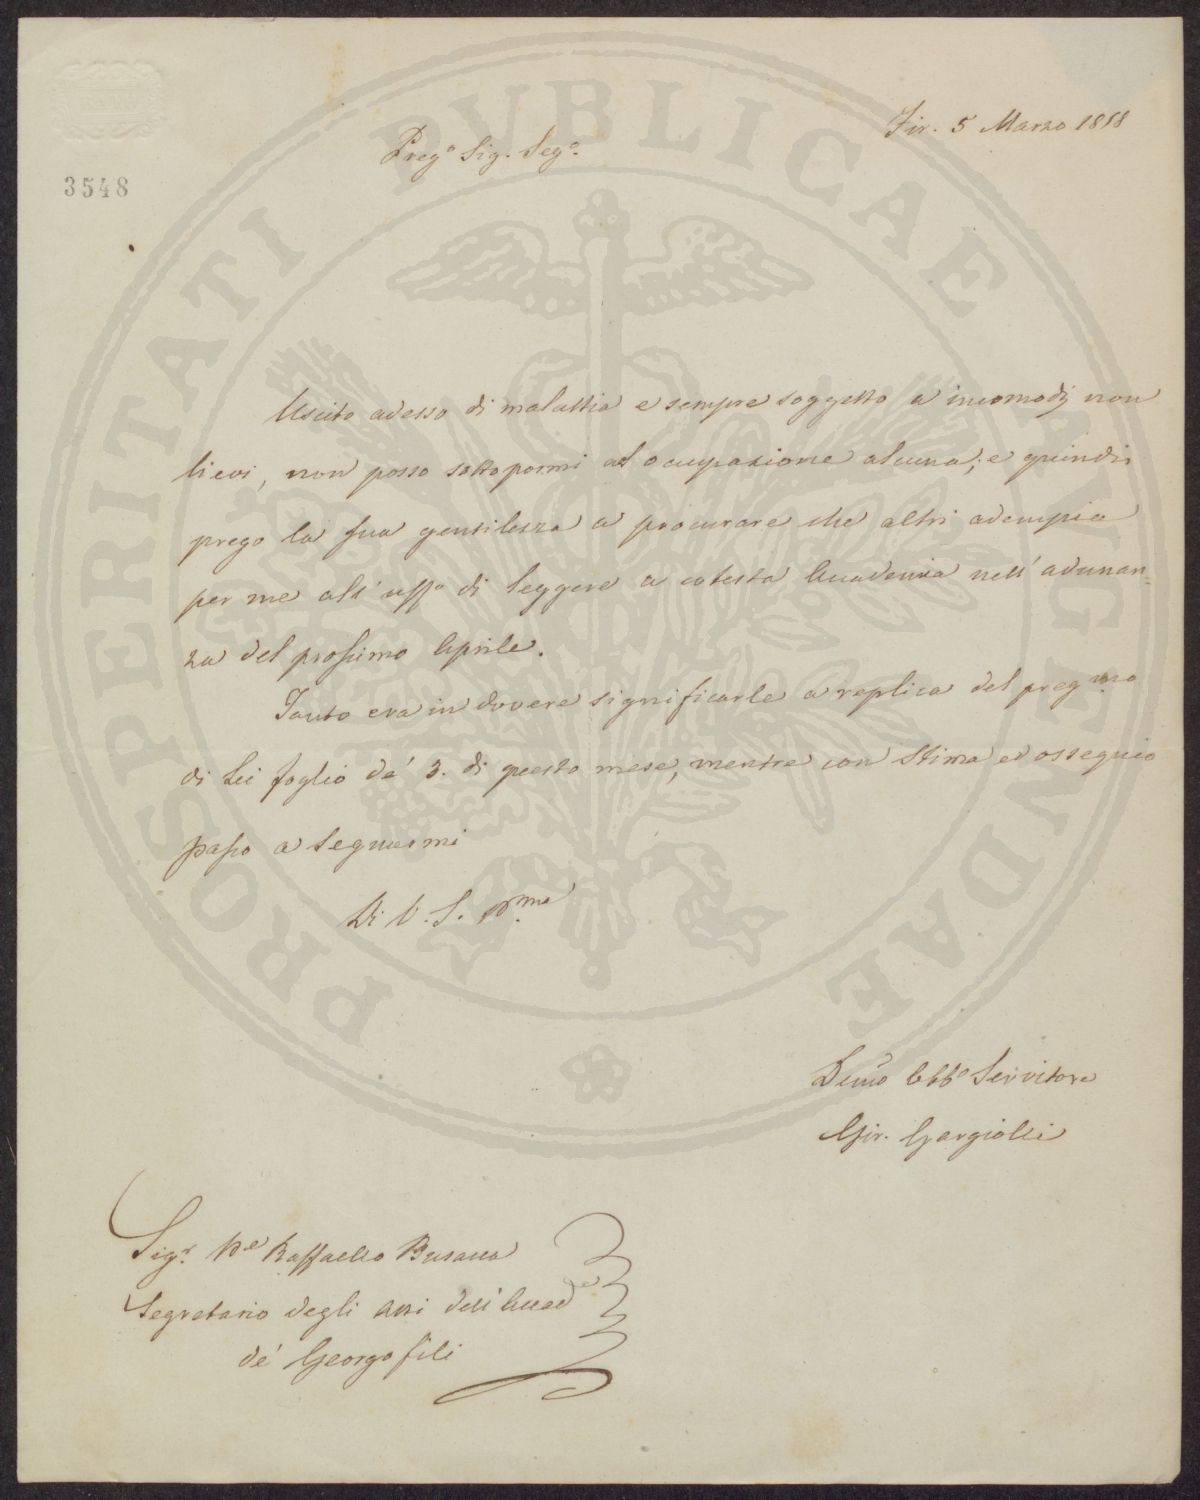 Fir. 5 Marzo 1858
Preg.o Sig. Seg.o
3548
Uscito adesso di malattia e sempre soggetto a incomodi non
lievi, non posso sottopormi ad occupazione alcuna; e quindi
prego la sua gentilezza a procurare che altri adempia
per me all' uff.o di leggere a cotesta Accademia nell' adunan-
za del prossimo Aprile.
Tanto era in dovere significarle a replica del preg.mo
di Lei foglio de' 3. di questo mese, mentre con stima ed ossequio
passo a segnarmi
Di V. S.
Dev.mo Obb.o Servitore
Gir. Gargiolli
Sig.r Raffaello Busacca
Segretario degli Atti dell' Accad.
de' Georgofili
PROSPERITATI PVBLICAE AVGENDAE